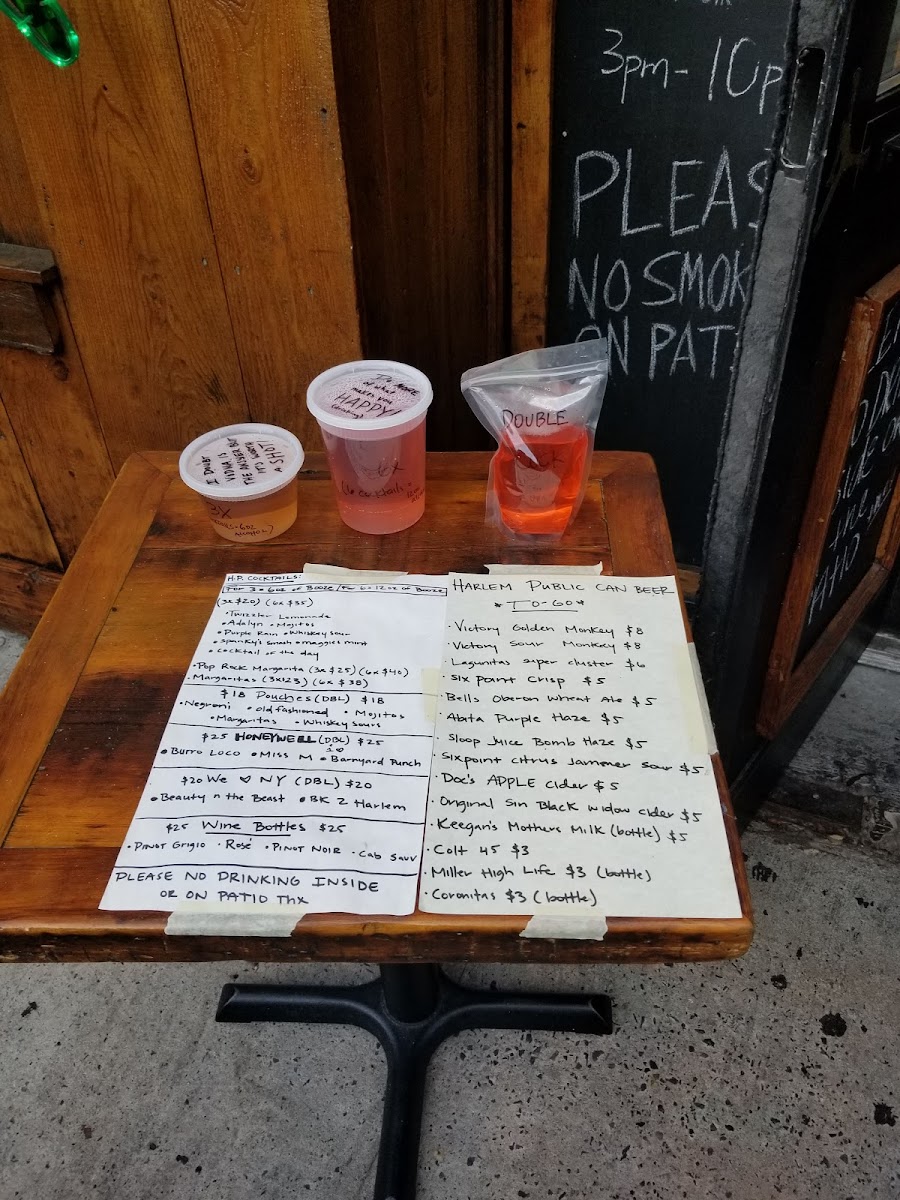 3pm-10p
PLEAS
NO SMOK
ON PATI
I DOUBT
VODKA IS
THE ANSWER BUT
IT'S WORTH
A SHOT!
3X
Do MORE
of what
makes you
HAPPY!
(drinking)
6x
(6 cocktails =
DOUBLE
H.P. COCKTAILS:
For 3 = 6oz of Booze / For 6 = 12oz of Booze
(3x $20) (6x $35)
• Twizzler Lemonade
• Adalyn • Mojitos
• Purple Rain • Whiskey Sour
• Spanky's Smash • maggies mint
• cocktail of the day
• Pop Rock Margarita (3x $25) (6x $40)
• Margaritas (3x$23) (6x $38)
$18 Pouches (DBL) $18
• Negroni • old fashioned • Mojitos
• Margaritas • Whiskey Sours
$25 HONEYWELL (DBL) $25
• Burro Loco • Miss M • Barnyard Punch
$20 We ♡ NY (DBL) $20
• Beauty n the Beast • BK 2 Harlem
$25 Wine Bottles $25
• PINOT GRIGIO • Rosé • PINOT NOIR • Cab Sauv
PLEASE NO DRINKING INSIDE
OR ON PATIO THX
HARLEM PUBLIC CAN BEER
*TO-GO*
• Victory Golden Monkey $8
• Victory Sour Monkey $8
• Lagunitas super cluster $6
• Six Point Crisp $5
• Bells Oberon Wheat Ale $5
• Abita Purple Haze $5
• Sloop Juice Bomb Haze $5
• Sixpoint Citrus Jammer Sour $5
• Doc's APPLE Cider $5
• Original Sin Black Widow cider $5
• Keegan's Mothers Milk (bottle) $5
• Colt 45 $3
• Miller High Life $3 (bottle)
• Coronitas $3 (bottle)